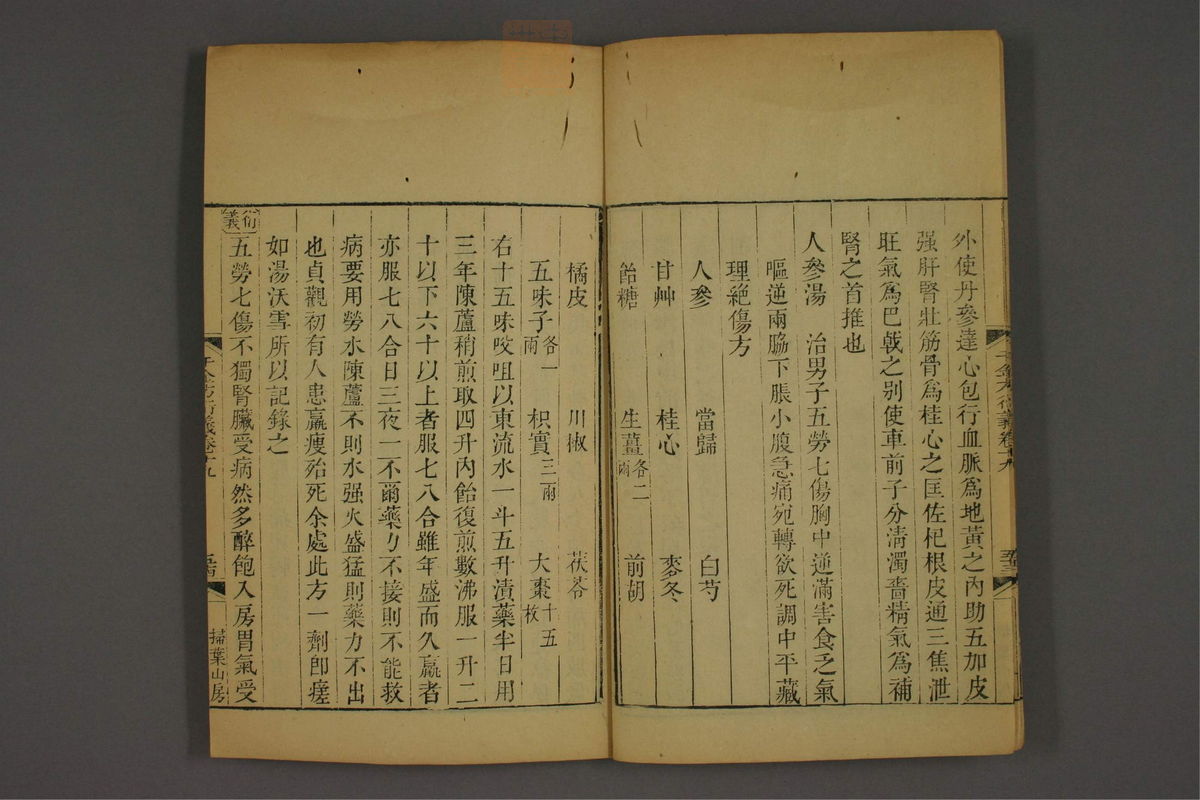 外使丹參達心包行血脈為地黃之內助五加皮
强肝腎壯筋骨為桂心之匡佐杞根皮通三焦泄
旺氣為巴戟之别使車前子分清濁嗇精氣為補
腎之首推也
人參湯　治男子五勞七傷胸中逆滿害食乏氣
嘔逆兩脇下脹小腹急痛宛轉欲死調中平藏
理絶傷方
人參　當歸　白芍
甘艸　桂心　麥冬
飴糖　生薑各二兩　前胡
橘皮　川椒　茯苓
五味子各一兩　枳實三兩　大棗十五枚
右十五味㕮咀以東流水一斗五升漬藥半日用
三年陳蘆稍煎取四升內飴復煎數沸服一升二
十以下六十以上者服七八合雖年盛而久羸者
亦服七八合日三夜二不爾藥力不接則不能救
病要用勞水陳蘆不則水强火盛猛則藥力不出
也貞觀初有人患羸瘦殆死余處此方一劑卽瘥
如湯沃雪所以記錄之
衍義
五勞七傷不獨腎臟受病然多醉飽入房胃氣受
千金方衍義卷十九
掃葉山房